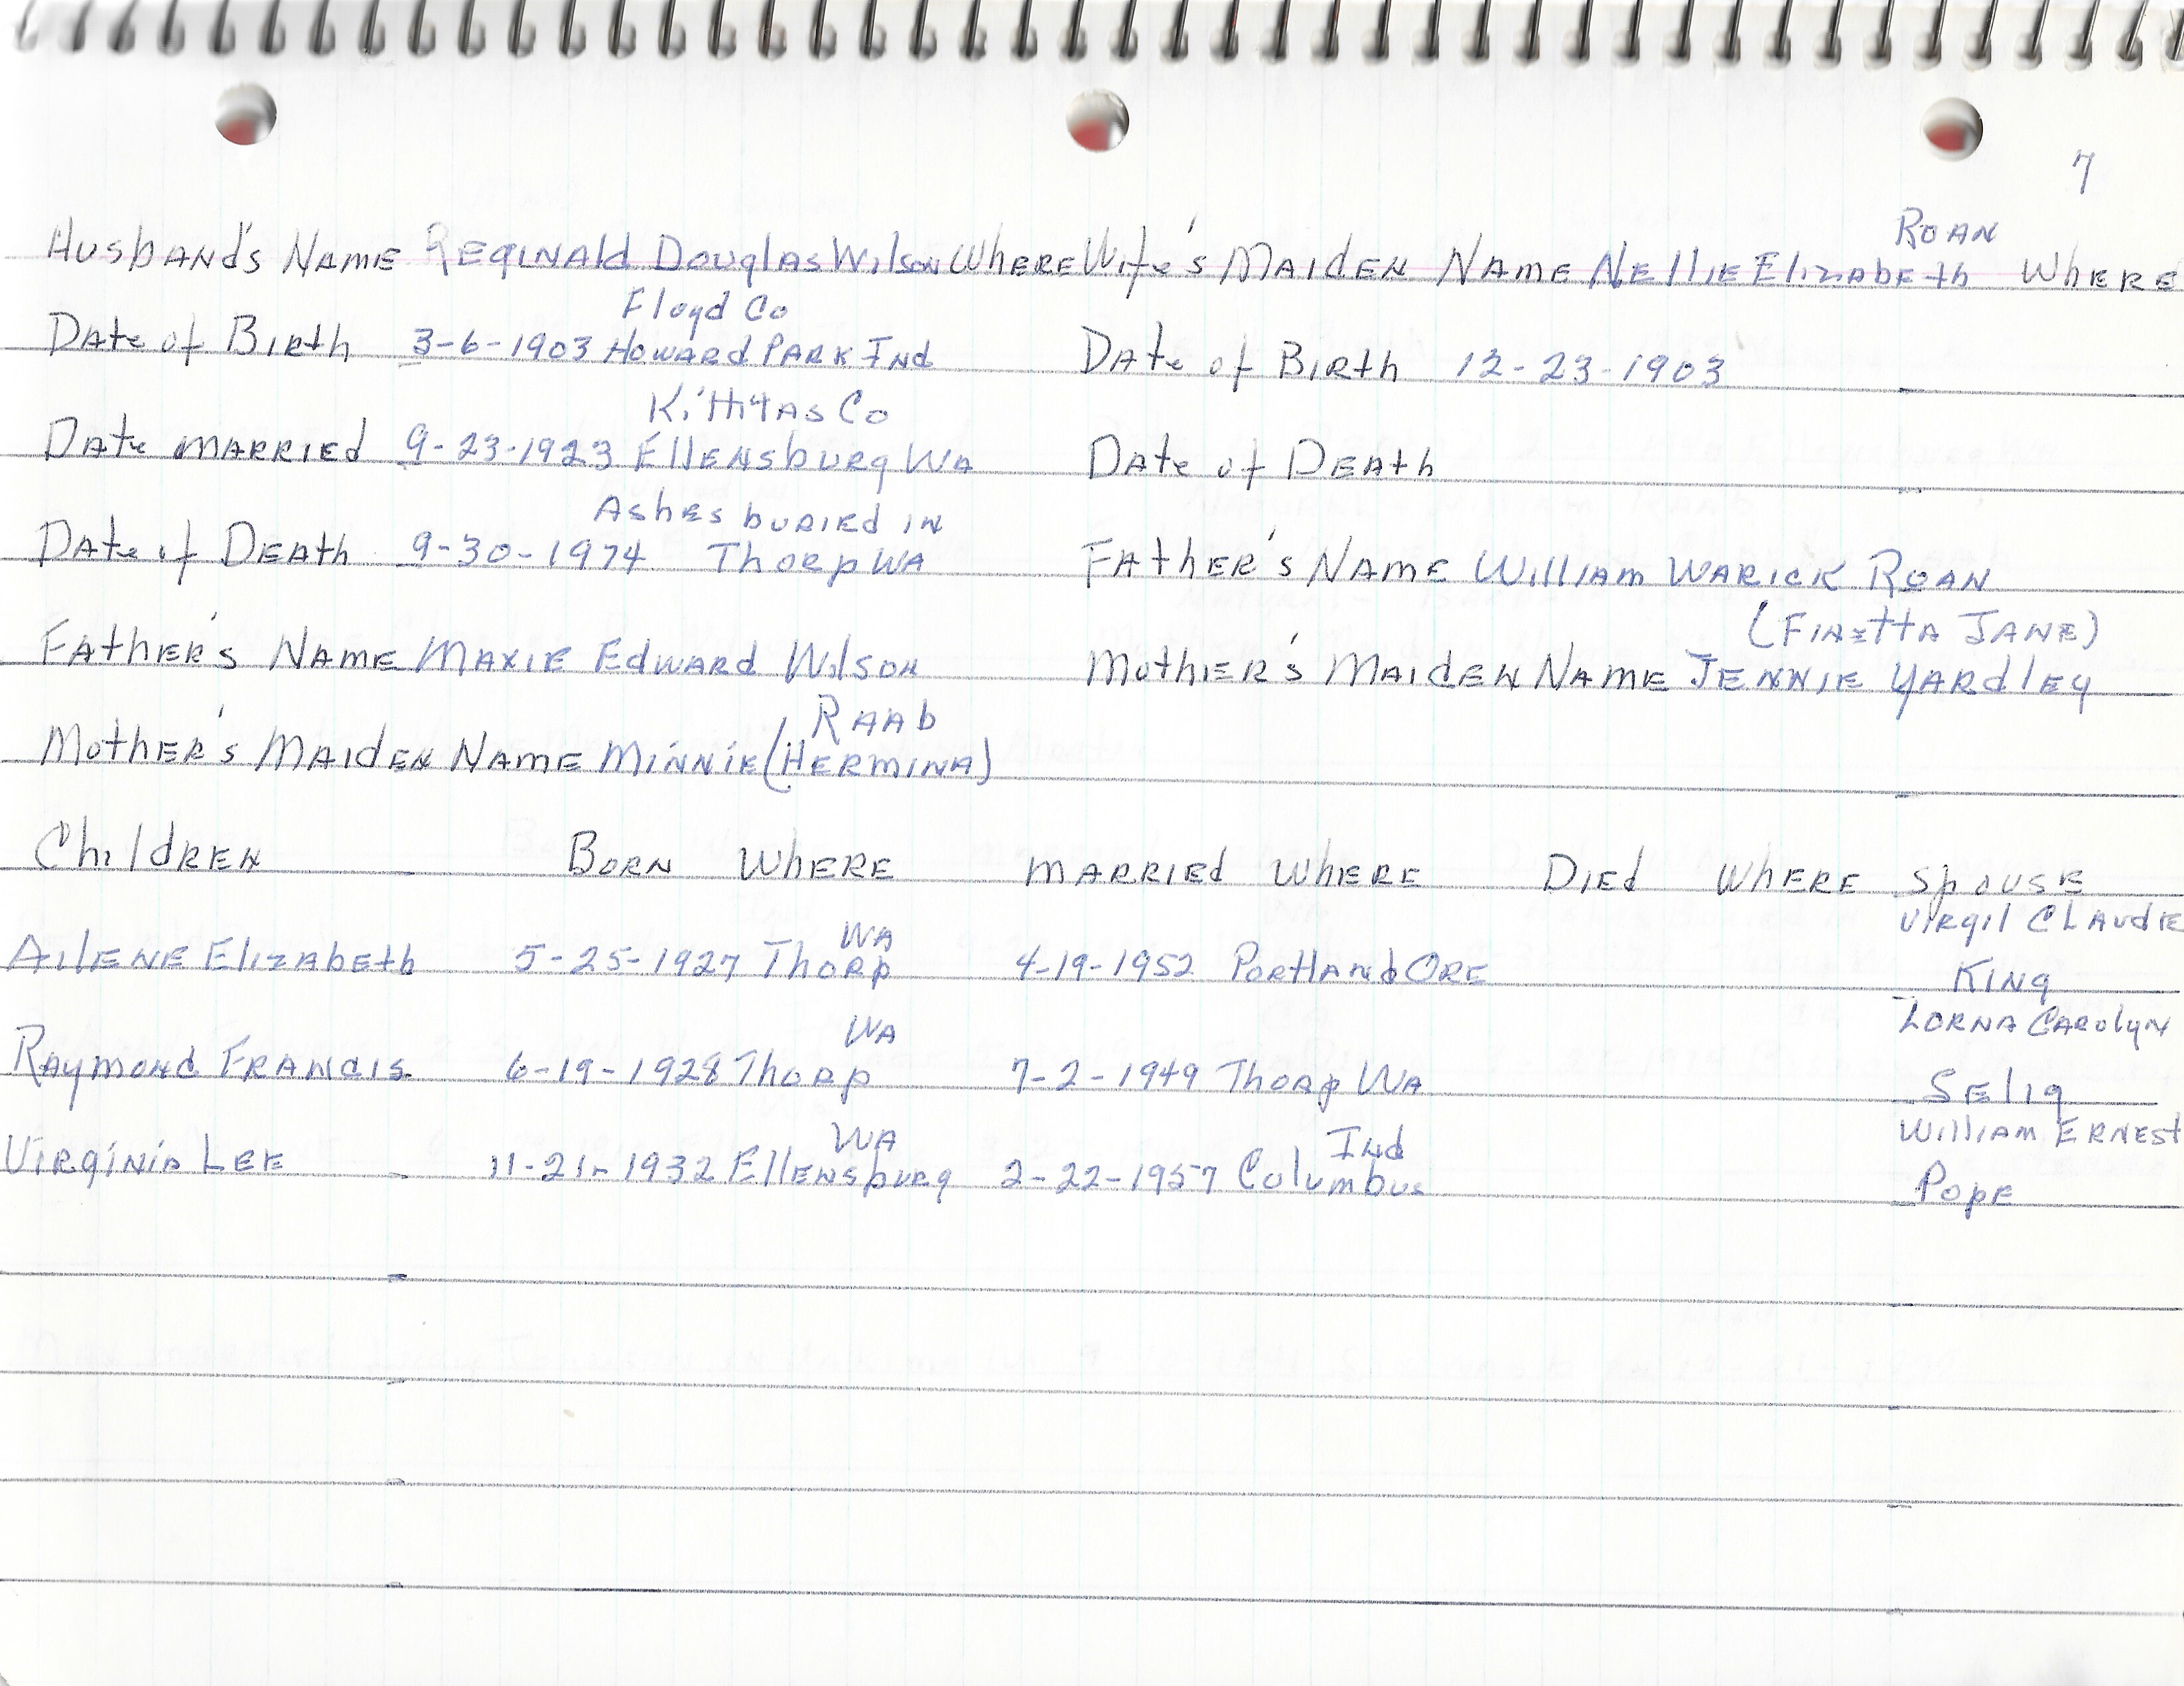 7
Roan
Husband's Name Reginald Douglas Wilson Where Wife's Maiden Name Nellie Elizabeth Where
Floyd Co
Date of Birth 3-6-1903 Howard Park Ind Date of Birth 12-23-1903
Kittitas Co
Date Married 9-23-1923 Ellensburg Wa Date of Death
Ashes buried in
Date of Death 9-30-1974 Thorp WA Father's Name William Warick Roan
(Finetta Jane)
Father's Name Maxie Edward Wilson Mother's Maiden Name Jennie Yardley
Raab
Mother's Maiden Name Minnie (Hermina)
Children Born Where Married Where Died Where Spouse
WA Virgil Claudie
Ailene Elizabeth 5-25-1927 Thorp 4-19-1952 Portland Ore King
WA Lorna Carolyn
Raymond Francis 6-19-1928 Thorp 7-2-1949 Thorp WA Selig
WA Ind William Ernest
Virginia Lee 11-21-1932 Ellensburg 2-22-1957 Columbus Pope